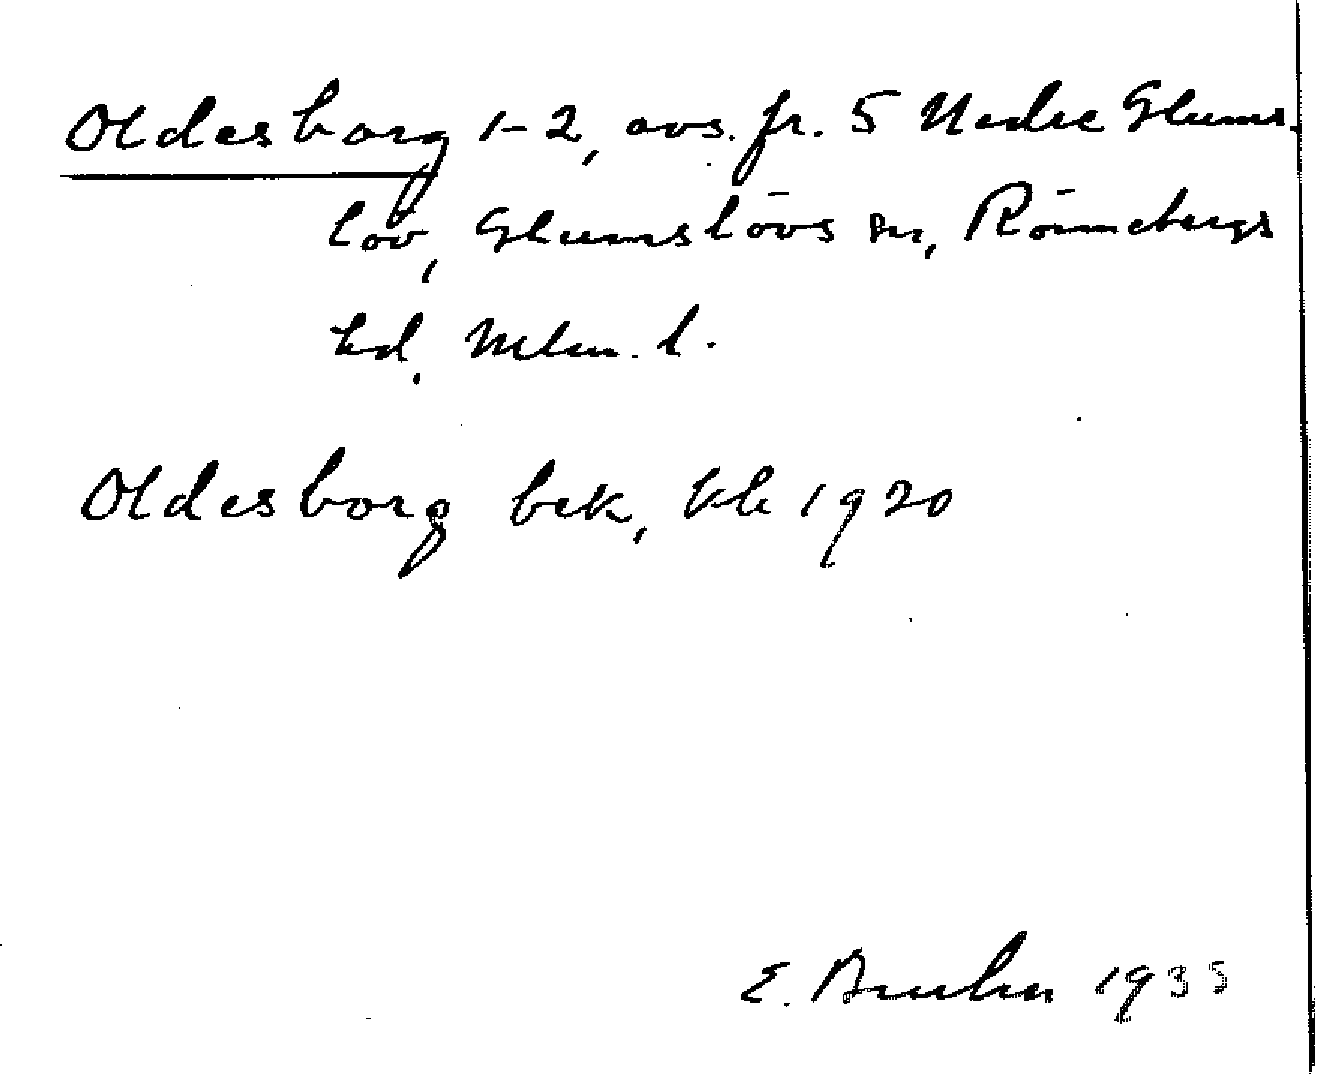 Oldesborg 1-2, avs. fr. 5 Nedre Glums-
löv, Glumslövs sn, Rönnebergs
hd. Mlm. l.
Oldesborg bek, kk 1920
E. Bruhn 1935